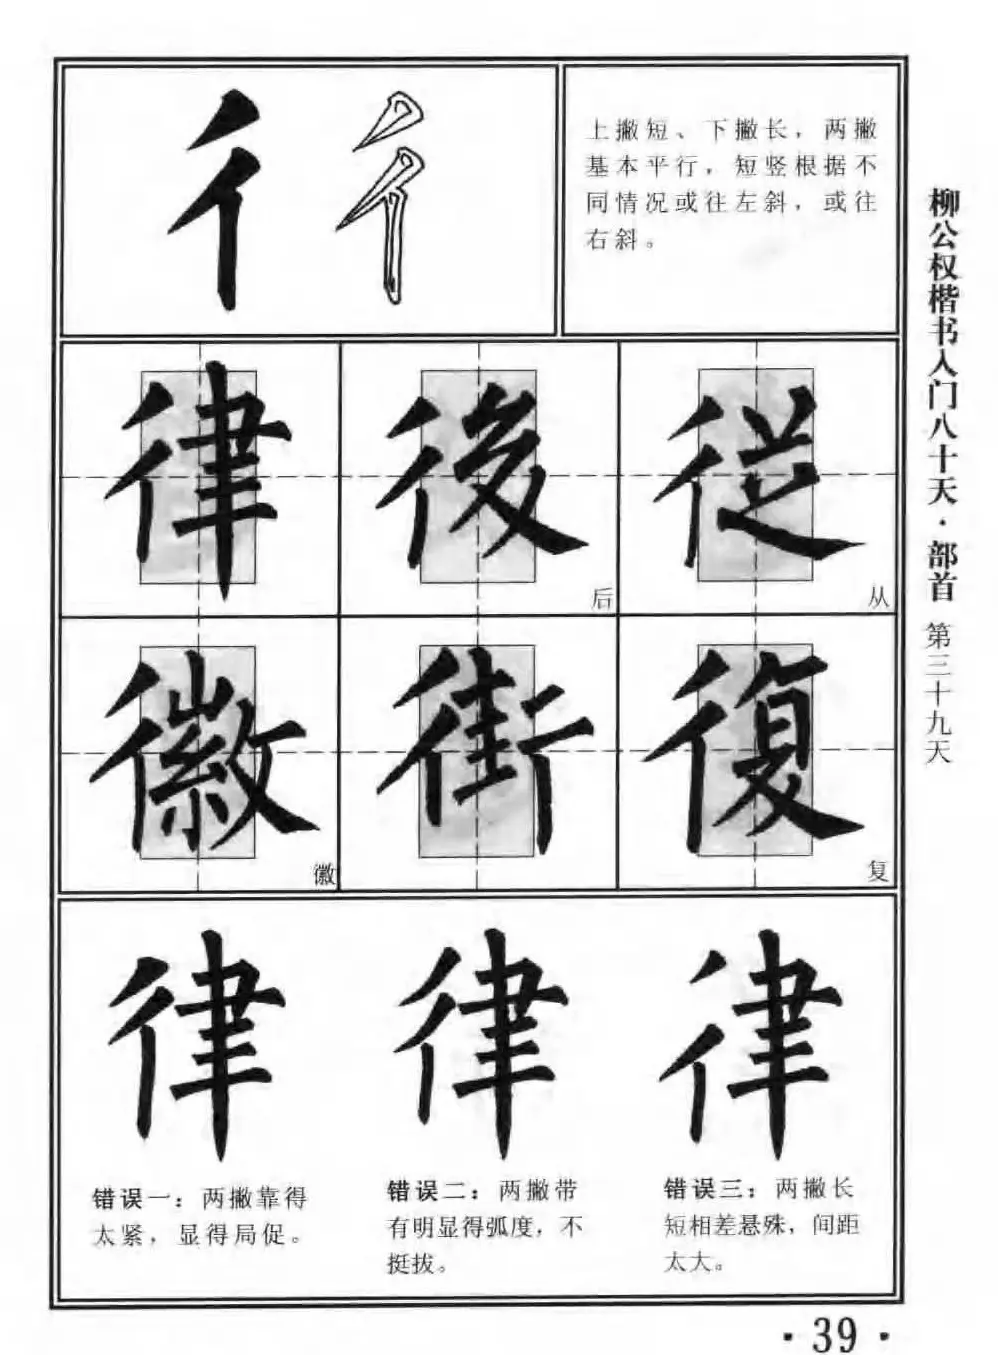 彳 彳
上撇短、下撇长，两撇
基本平行，短竖根据不
同情况或往左斜，或往
右斜。
柳公权楷书入门八十天·部首 第三十九天
律 後 從
后 从
徽 街 復
徽 复
律 律 律
错误一：两撇靠得
太紧，显得局促。
错误二：两撇带
有明显得弧度，不
挺拔。
错误三：两撇长
短相差悬殊，间距
太大。
·39·